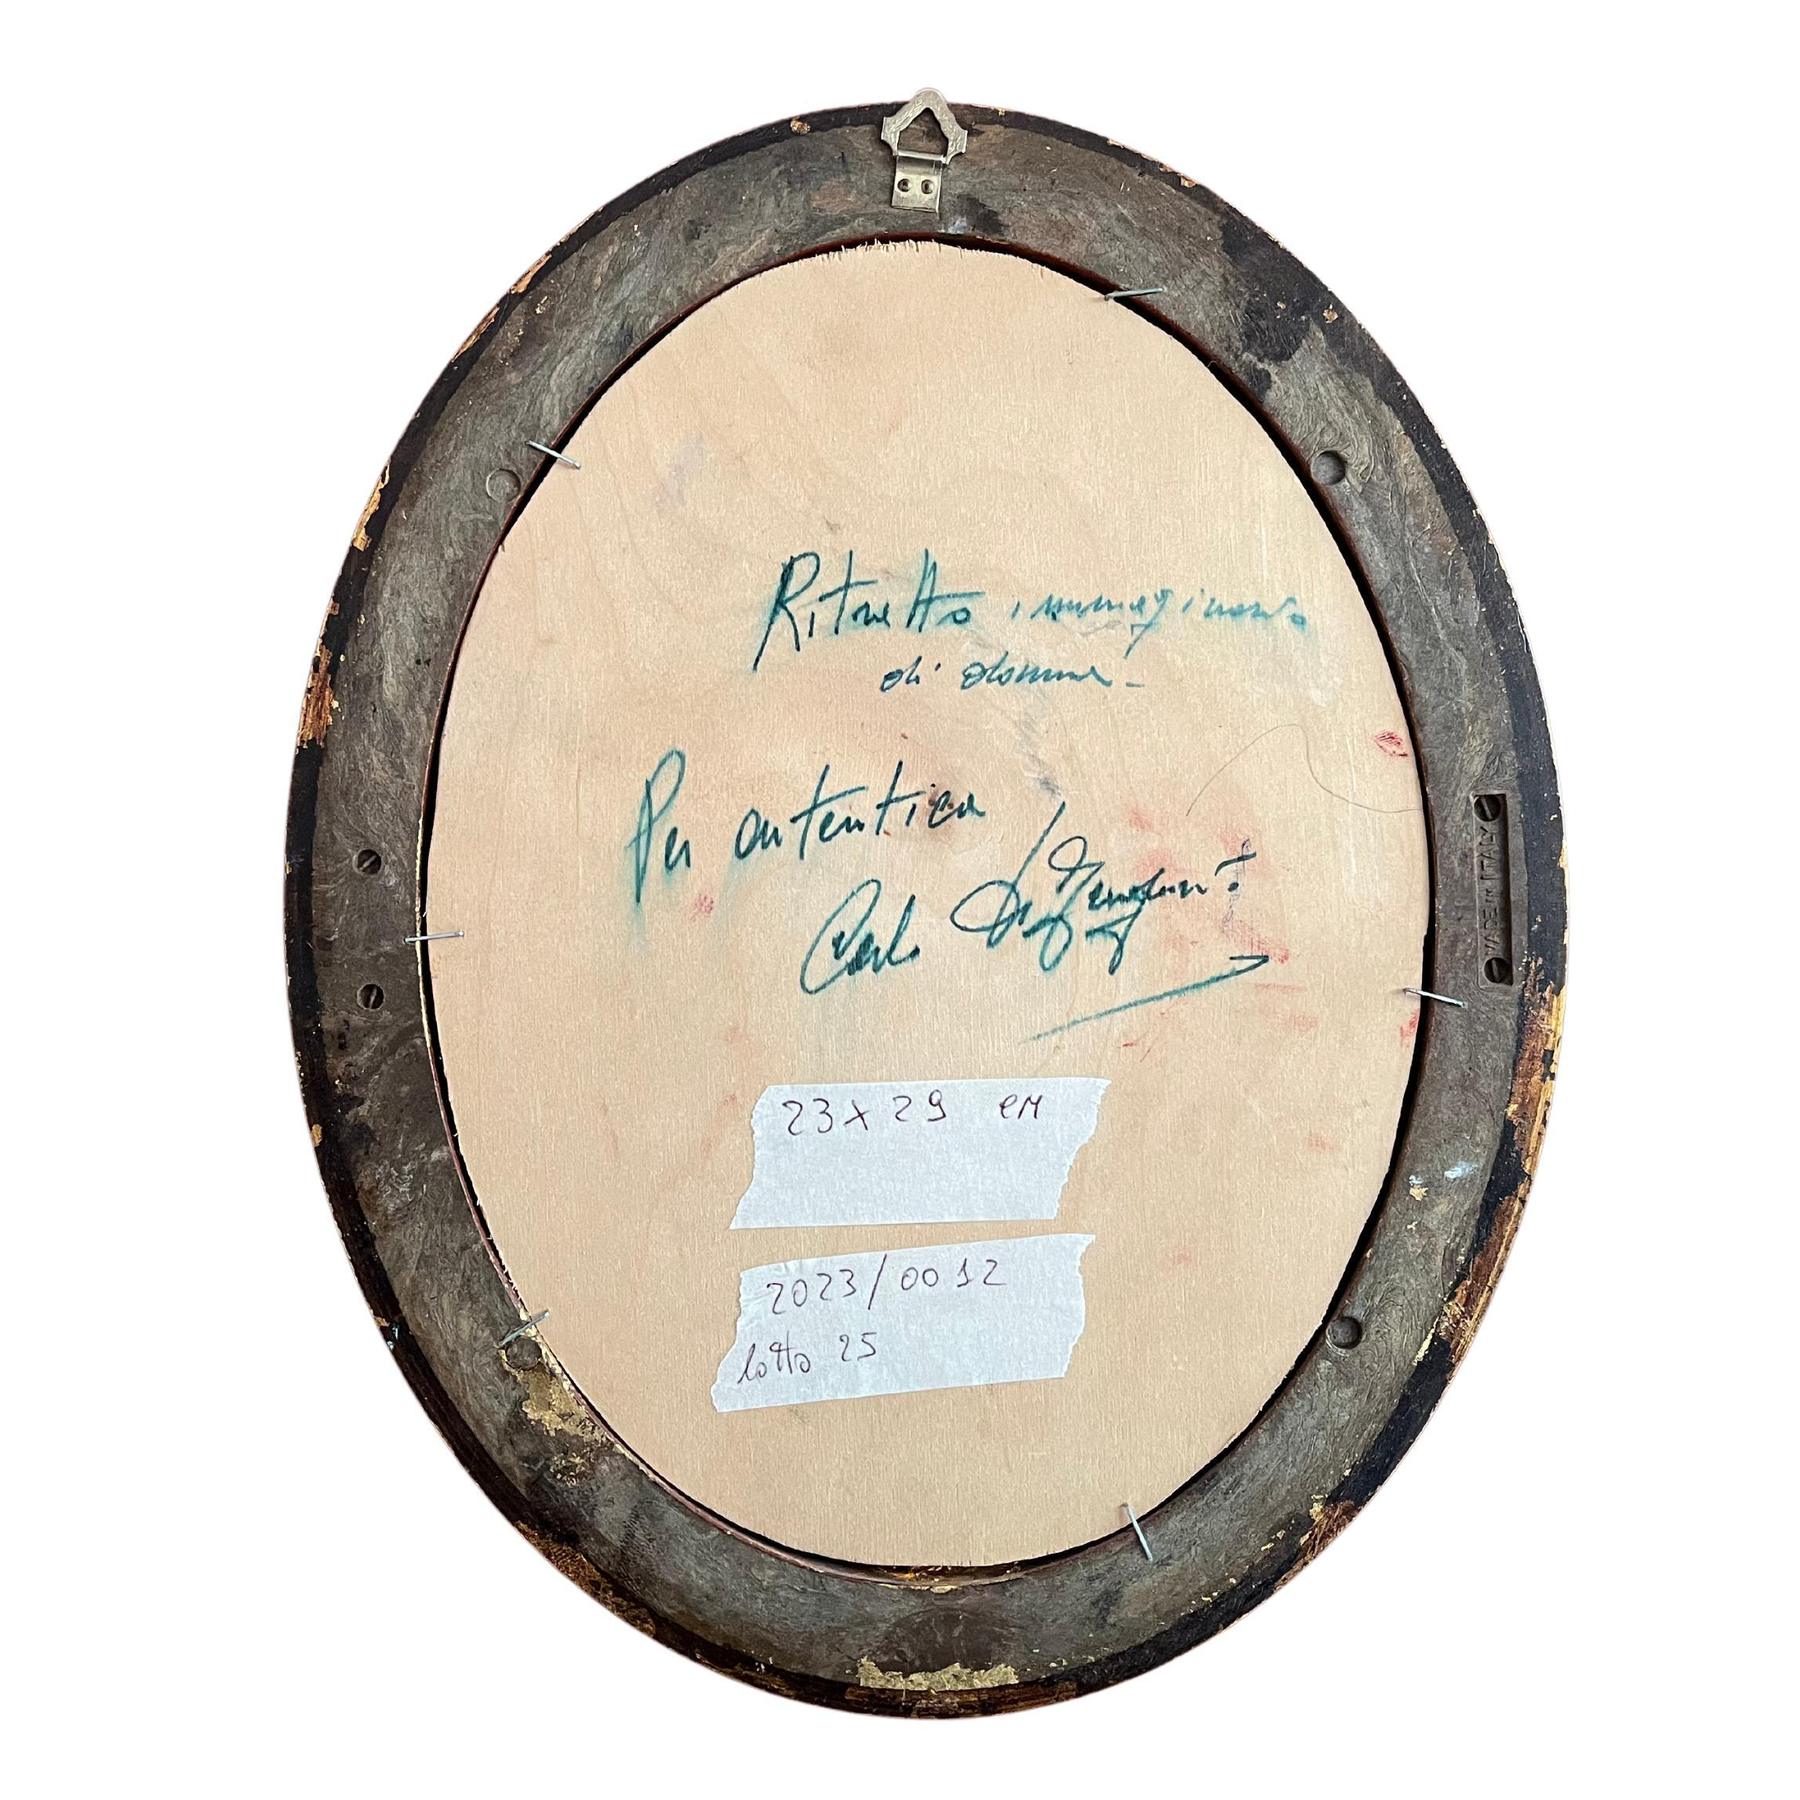 Ritratto immaginario
di donna -
Per autentica
Carlo
23 x 29 cm
2023/0012
lotto 25
MADE IN ITALY